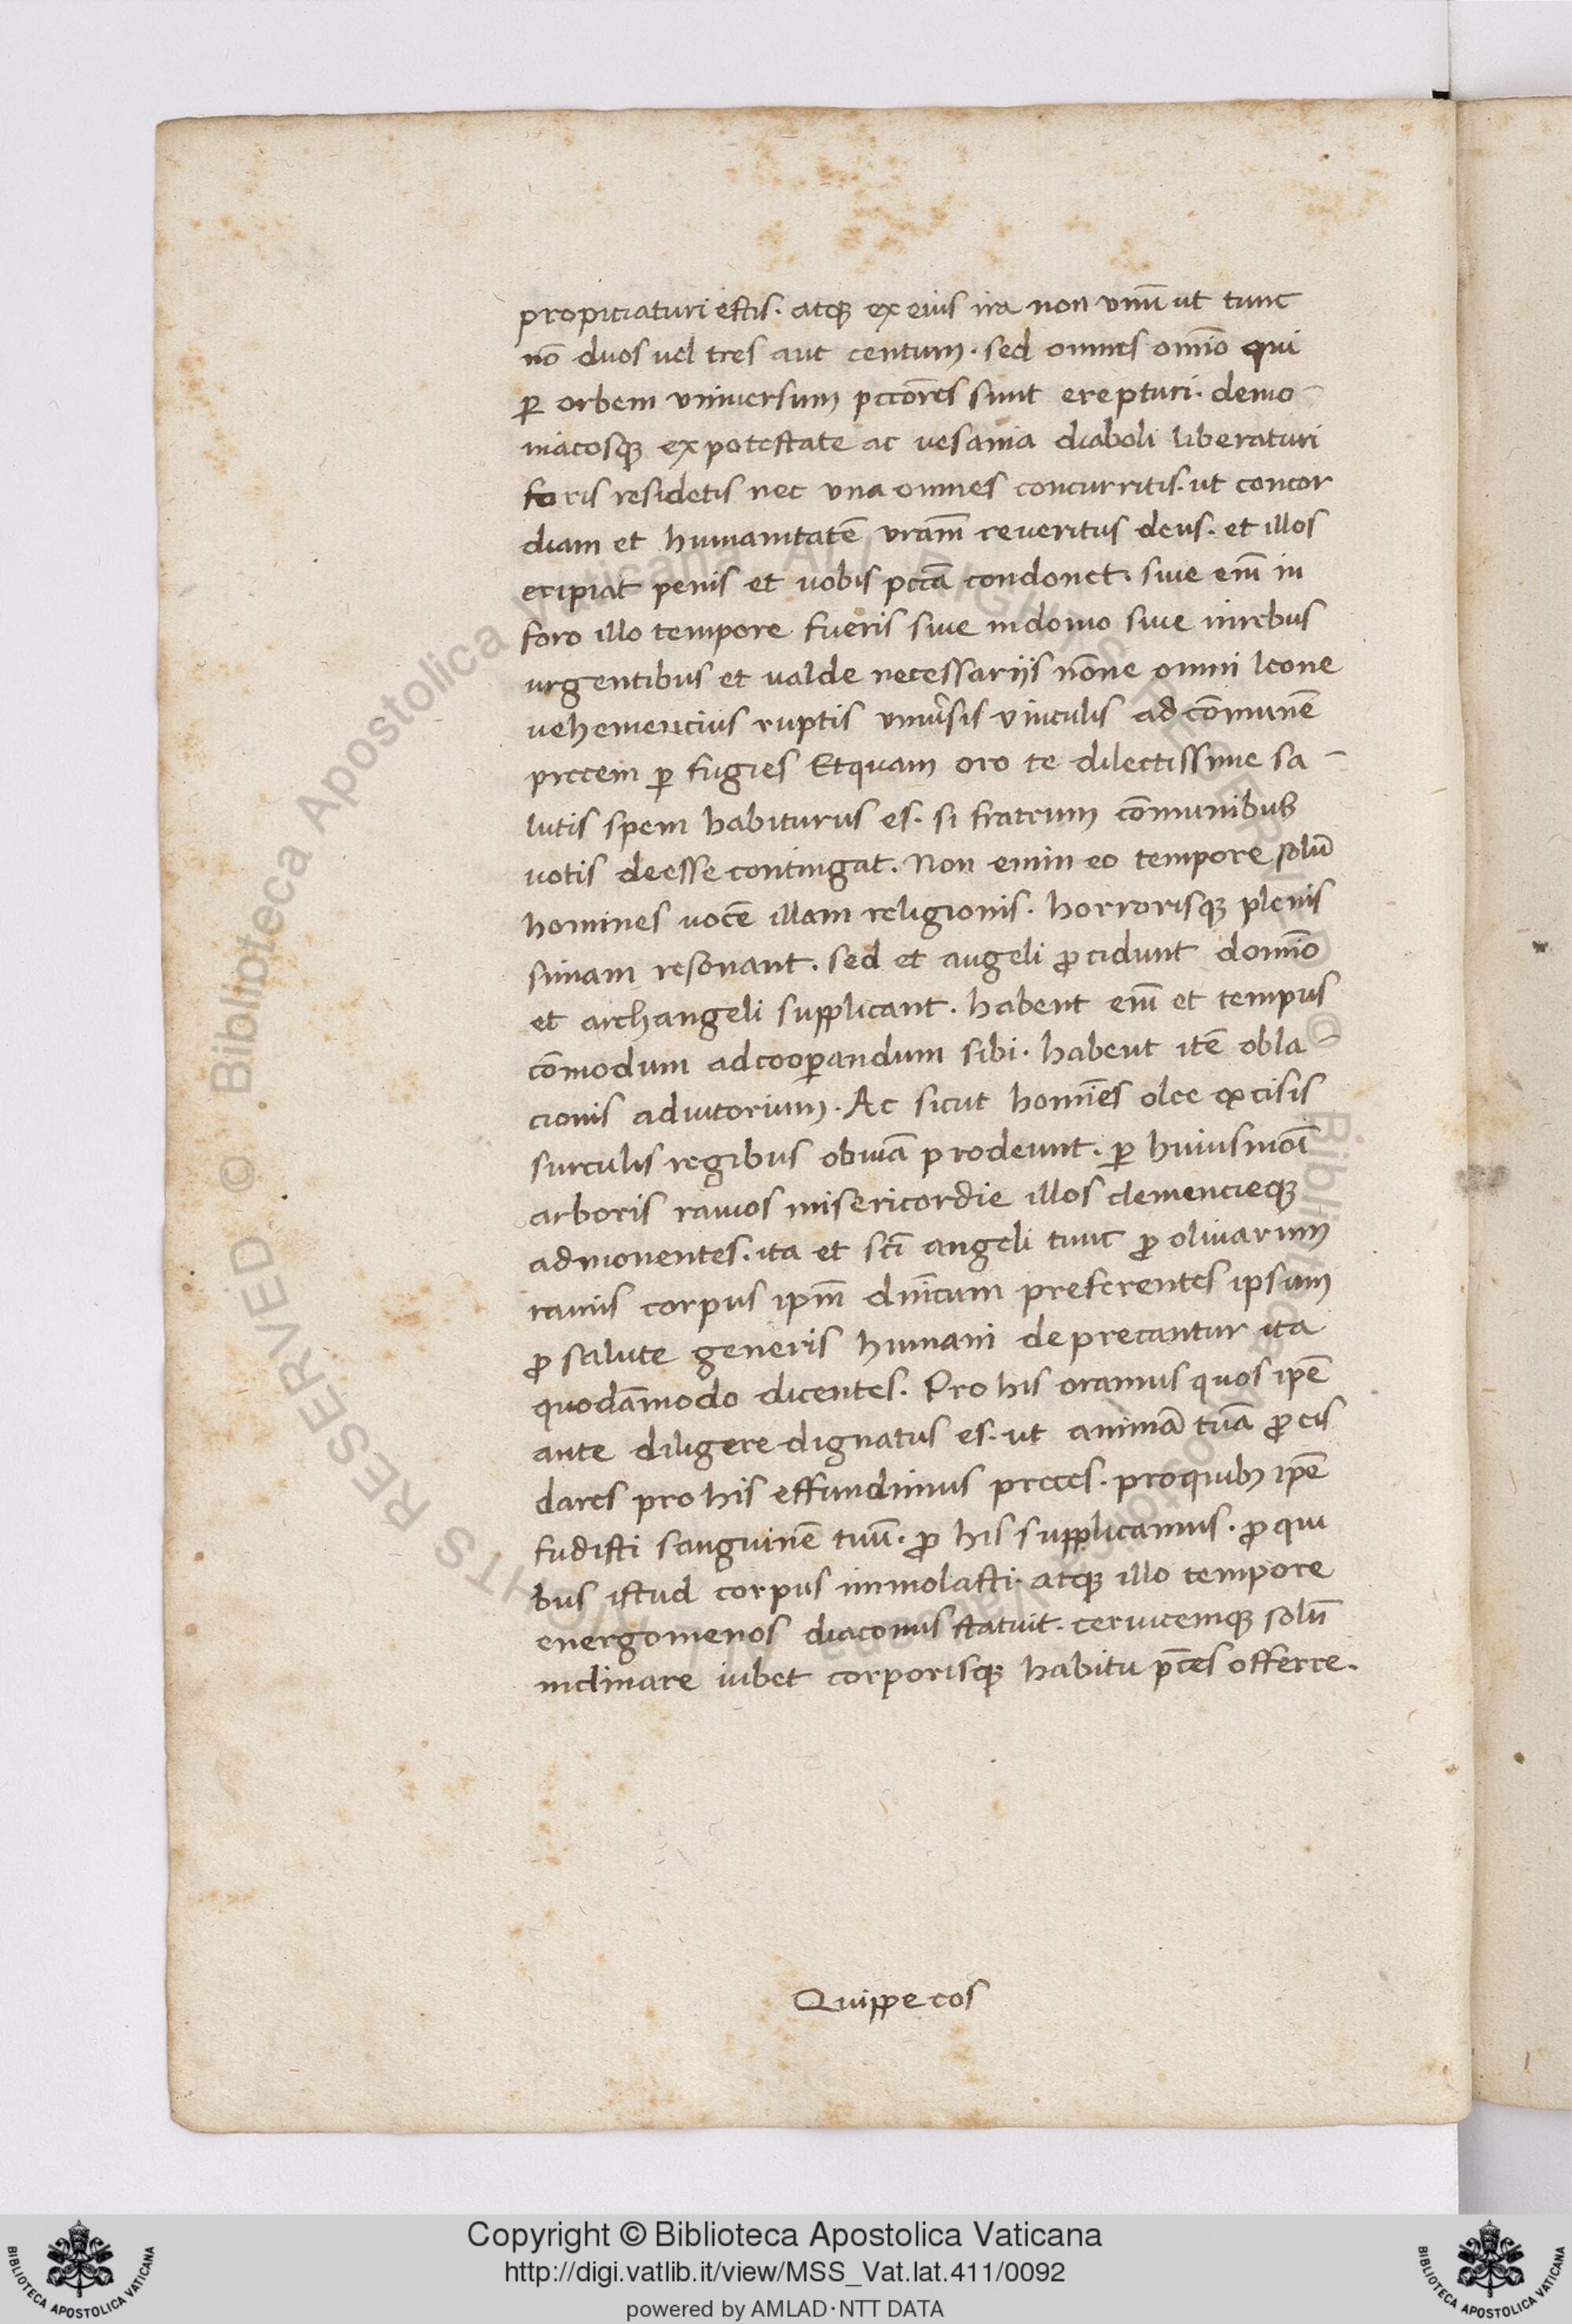 propiciaturi estis. atq; ex eius ira non vnū ut tunc
nō duos vel tres aut centum. sed omnes om̄io qui
ꝑ orbem vniuersum pctōres sunt erepturi. demo-
niacosq; ex potestate ac vesania diaboli liberaturi
foris residetis nec vna omnes concurritis. ut concor
diam et humanitatē vram̄ reueritus deus. et illos
eripiat penis et vobis pctā condonet. siue em̄ in
foro illo tempore fueris siue in domo siue in rebus
urgentibus et valde necessarijs nōne omni leone
vehemencius ruptis vniu̓sis vinculis ad cōmunē
precem ꝑ fugies Et quam oro te dilectissime sa-
lutis spem habiturus es. si fratrum cōmunibus
votis deesse contingat. Non enim eo tempore solū
homines vocē illam religionis. horrorisq; plenis
simam resonant. sed et angeli ꝓcidunt domīo
et archangeli supplicant. habent em̄ et tempus
cōmodum ad cooꝑandum sibi. habent itē obla-
cionis adiutorium. Ac sicut homīes olee excisis
surculis regibus obuiā prodeunt. ꝑ huiusmōi
arboris ramos misericordie illos clemencieq;
admonentes. ita et sct̄i angeli tunc ꝓ oliuarum
ramis corpus ipm̄ dn̄icum preferentes ipsum
ꝓ salute generis humani deprecantur ita
quodāmodo dicentes. Pro his oramus quos ipē
ante diligere dignatus es. ut animā tuā ꝓ eis
dares pro his effundimus preces. pro quibꝫ ipē
fudisti sanguinē tuū. ꝓ his supplicamus. ꝓ qui
bus istud corpus immolasti. atq; illo tempore
energomenos diaconus statuit. ceruicemq; solū
inclinare iubet corporisq; habitu p̄ces offerre.
Quippe eos
Copyright © Biblioteca Apostolica Vaticana
http://digi.vatlib.it/view/MSS_Vat.lat.411/0092
powered by AMLAD·NTT DATA
BIBLIOTECA APOSTOLICA VATICANA
BIBLIOTECA APOSTOLICA VATICANA